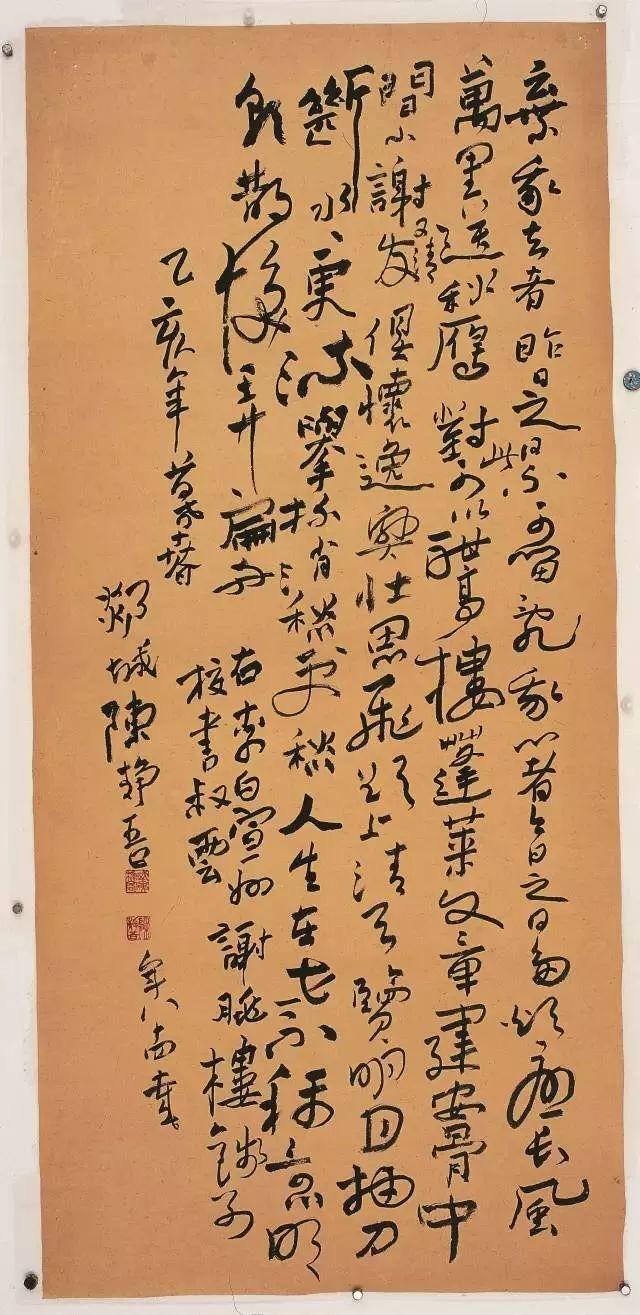 棄我去者昨日之日不可留亂我心者今日之日多煩憂長風
萬里送秋雁對此可以酣高樓蓬萊文章建安骨中
間小謝又清发俱懷逸興壯思飛欲上清天覽明月抽刀
斷水水更流舉杯消愁愁更愁人生在世不稱意明
朝散髮弄扁舟
右李白宣州謝朓樓餞別
校書叔雲
乙亥年暮春
城陳靜吾